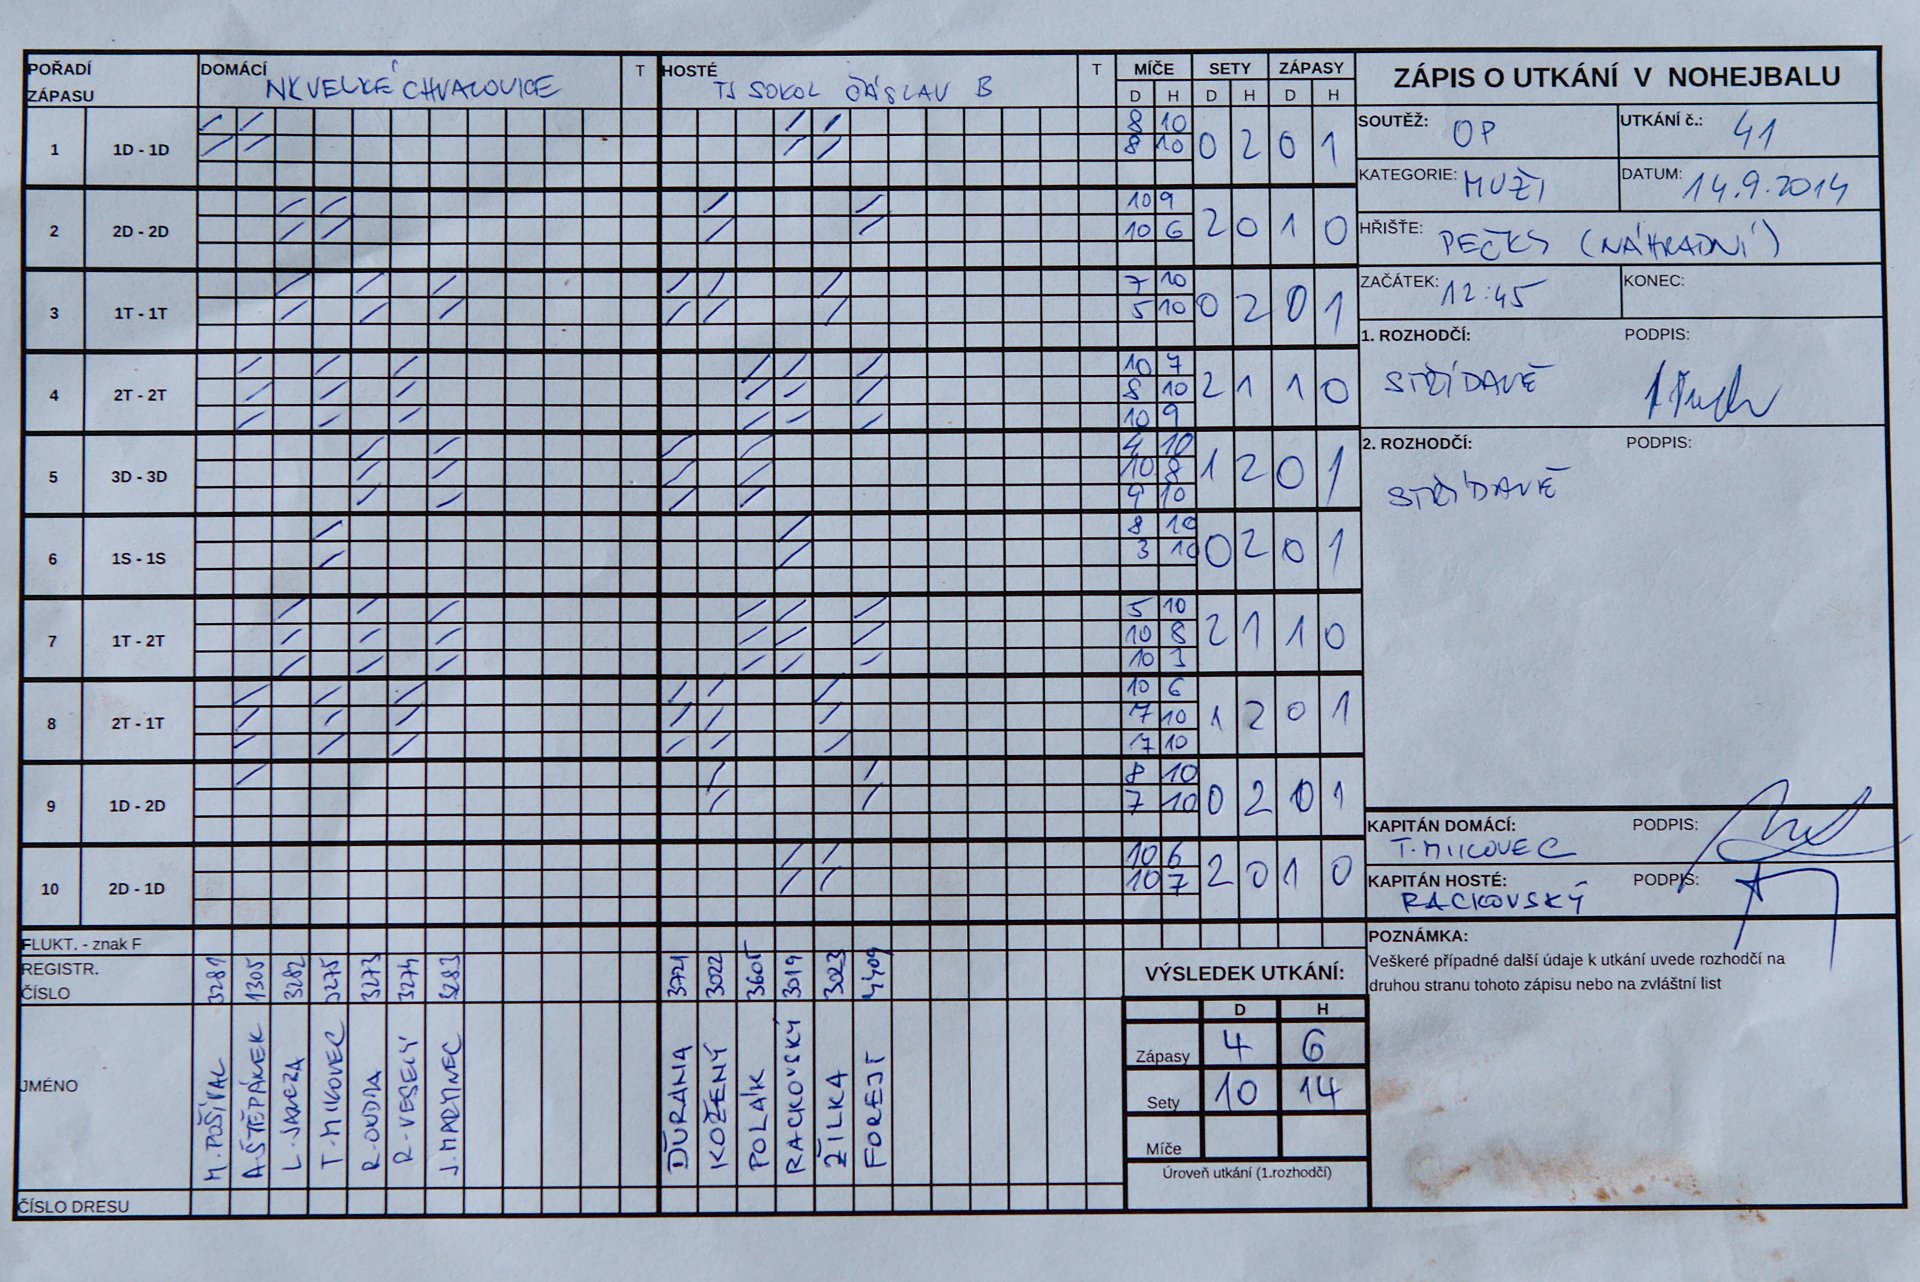 POŘADÍ ZÁPASU DOMÁCÍ NK VELKÉ CHVALOVICE T HOSTÉ TJ SOKOL ČÁSLAV B T MÍČE SETY ZÁPASY
D H D H D H
1 1D - 1D 8 10 0 2 0 1
8 10
2 2D - 2D 10 9 2 0 1 0
10 6
3 1T - 1T 7 10 0 2 0 1
5 10
4 2T - 2T 10 7 2 1 1 0
8 10
10 9
5 3D - 3D 4 10 1 2 0 1
10 8
9 10
6 1S - 1S 8 10 0 2 0 1
3 10
7 1T - 2T 5 10 2 1 1 0
10 8
10 3
8 2T - 1T 10 6 1 2 0 1
7 10
7 10
9 1D - 2D 8 10 0 2 0 1
7 10
10 2D - 1D 10 6 2 0 1 0
10 7
FLUKT. - znak F
REGISTR. ČÍSLO 3281 1305 3282 3275 3273 3274 3283 3721 3022 3605 3019 3023 4409
JMÉNO M. POŠÍVAL A. ŠTĚPÁNEK L. JANCZA T. MIKOVEC R. OUDIA R. VESELÝ J. MARTINEC ĎURANA KOŽENÝ POLÁK RACKOVSKÝ ŽILKA FOREJT
ČÍSLO DRESU
VÝSLEDEK UTKÁNÍ:
D H
Zápasy 4 6
Sety 10 14
Míče
Úroveň utkání (1.rozhodčí)
ZÁPIS O UTKÁNÍ V NOHEJBALU
SOUTĚŽ: OP UTKÁNÍ č.: 41
KATEGORIE: MUŽI DATUM: 14.9.2014
HŘIŠTĚ: PEČKY (NÁHRADNÍ)
ZAČÁTEK: 12:45 KONEC:
1. ROZHODČÍ: PODPIS:
STŘÍDAVĚ
2. ROZHODČÍ: PODPIS:
STŘÍDAVĚ
KAPITÁN DOMÁCÍ: PODPIS:
T. MIKOVEC
KAPITÁN HOSTÉ: PODPIS:
RACKOVSKÝ
POZNÁMKA:
Veškeré případné další údaje k utkání uvede rozhodčí na
druhou stranu tohoto zápisu nebo na zvláštní list